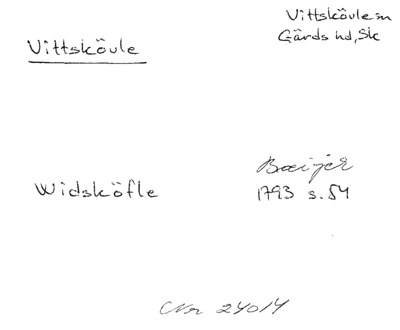 Vittskövle
Vittskövle sn
Gärds hd, Sk
Widsköfle
Baeijer
1793 s. 54
Nr 24014